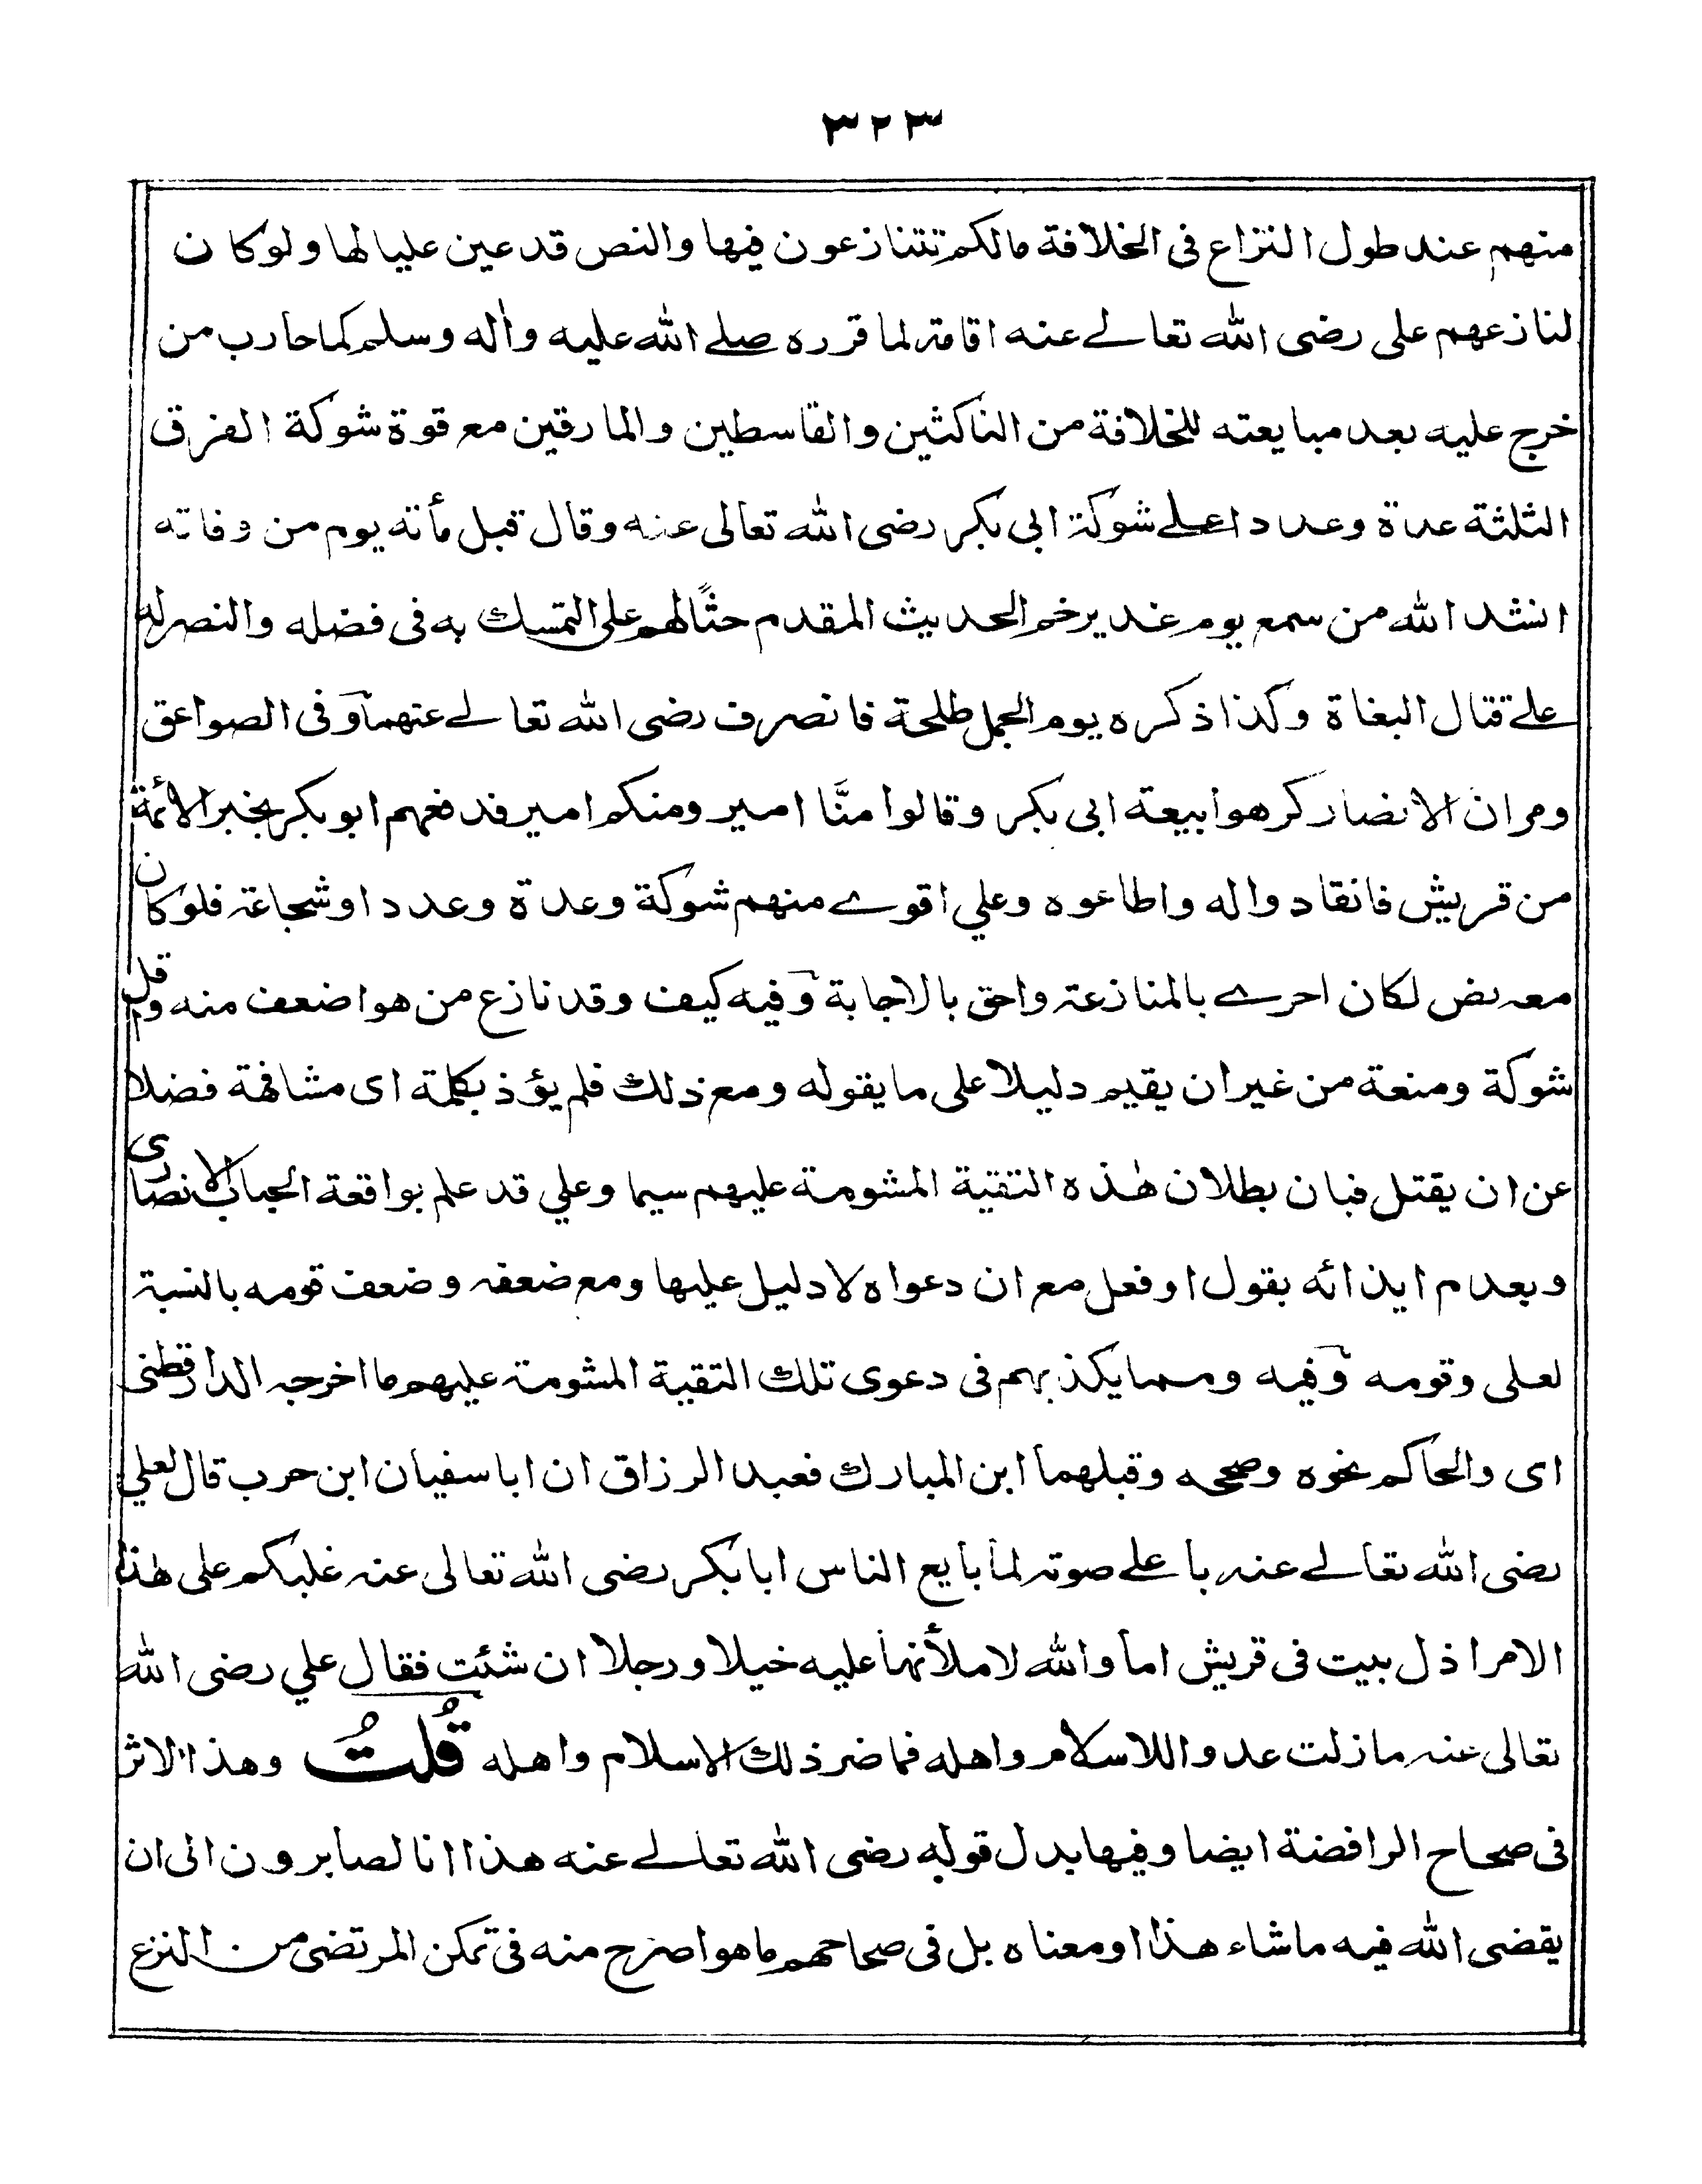 ٣٢٣
منهم عند طول النزاع فى الخلافة مالكم تتنازعون فيها والنص قد عين عليا لها ولو كان
لنازعهم على رضى الله تعالے عنه اقامة لما قرره صلے الله عليه وأله وسلم كما حارب من
خرج عليه بعد مبايعته للخلافة من الناكثين والقاسطين والمارقين مع قوة شوكة الفرق
الثلثة عدة وعددا علے شوكة ابى بكر رضى الله تعالى عنه وقال قبل مأته يوم من وفاته
انشد الله من سمع يوم غدير خم الحديث المقدم حثًا لهم على التمسك به فى فضله والنصر له
علے قتال البغاة وكذا ذكره يوم الجمل طلحة فانصرف رضى الله تعالے عنهما وفى الصواعق
ومر ان الانصار كرهوا بيعة ابى بكر وقالوا منَّا امير ومنكم امير فدفعهم ابو بكر بخبر الائمة
من قريش فانقادوا له واطاعوه وعلي اقوے منهم شوكة وعدة وعددا وشجاعة فلو كان
معه نص لكان احرے بالمنازعة واحق بالاجابة وفيه كيف وقد نازع من هو اضعف منه واقل
شوكة ومنعة من غير ان يقيم دليلا على ما يقوله ومع ذلك فلم يؤذ بكلمة اى مشافهة فضلا
عن ان يقتل فبان بطلان هذه التقية المشومة عليهم سيما وعلي قد علم بواقعة الحباب الانصارى
وبعدم ايذائه بقول او فعل مع ان دعواه لا دليل عليها ومع ضعفه وضعف قومه بالنسبة
لعلى وقومه وفيه ومما يكذبهم فى دعوى تلك التقية المشومة عليهم ما اخرجه الدارقطنى
اى والحاكم نحوه وصححه وقبلهما ابن المبارك فعبد الرزاق ان ابا سفيان ابن حرب قال لعلي
رضى الله تعالے عنه باعلے صوته لما بايع الناس ابا بكر رضى الله تعالى عنه غلبكم على هذا
الامر اذل بيت فى قريش اما والله لاملأنها عليه خيلا ورجلا ان شئت فقال علي رضى الله
تعالى عنه ما زلت عدوا للاسلام واهله فما ضر ذلك الاسلام واهله قُلتُ وهذا الاثر
فى صحاح الرافضة ايضا وفيها بدل قوله رضى الله تعالے عنه هذا انا لصابرون الى ان
يقضى الله فيه ما شاء هذا او معناه بل فى صحاحهم ما هو اصرح منه فى تمكن المرتضى من النزع